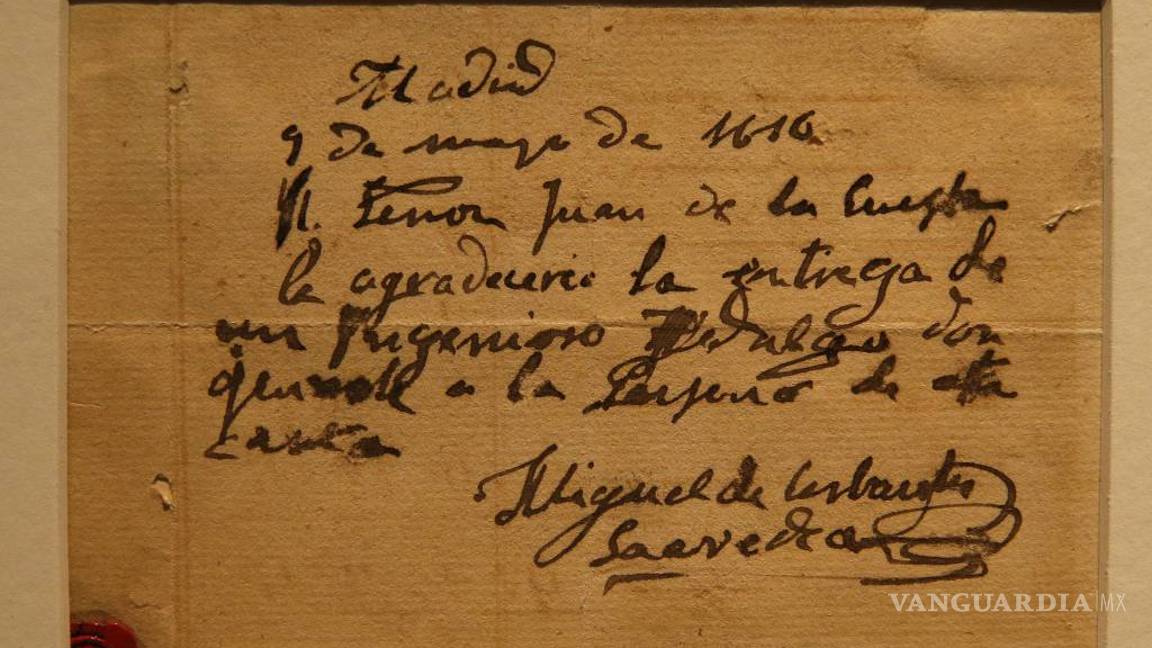 Madrid
9 de mayo de 1616
Señor Juan de la Cuesta
le agradecere la entrega de
un Ingenioso Hidalgo don
quixote a la Persona de esta
carta
Miguel de Cerbantes
Saavedra
VANGUARDIA MX